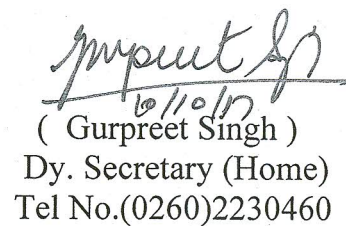 Gurpreet Singh
10/10/17
( Gurpreet Singh )
Dy. Secretary (Home)
Tel No.(0260)2230460